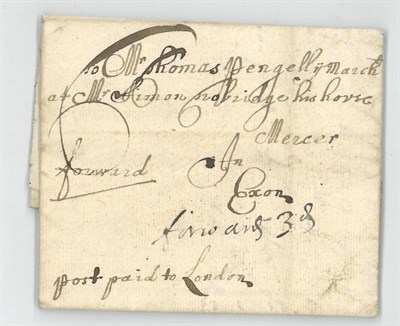 To Mr Thomas Pengelly March
at Mr Simon his horse
Mercer
forward In
Exon
forward 3d
post paid to London